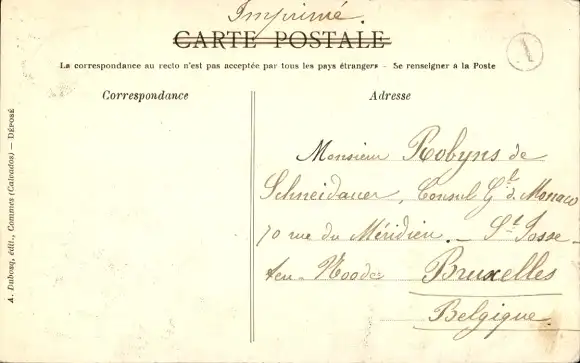 Imprimé.
CARTE POSTALE
La correspondance au recto n'est pas acceptée par tous les pays étrangers - Se renseigner à la Poste
Correspondance
Adresse
Monsieur Robyns de
Schneidauer, Consul Gl. d. Monaco
70 rue du Méridien. - St. Josse -
ten - Noode
Bruxelles
Belgique.
A. Dubosq, édit., Commes (Calvados) — DÉPOSÉ